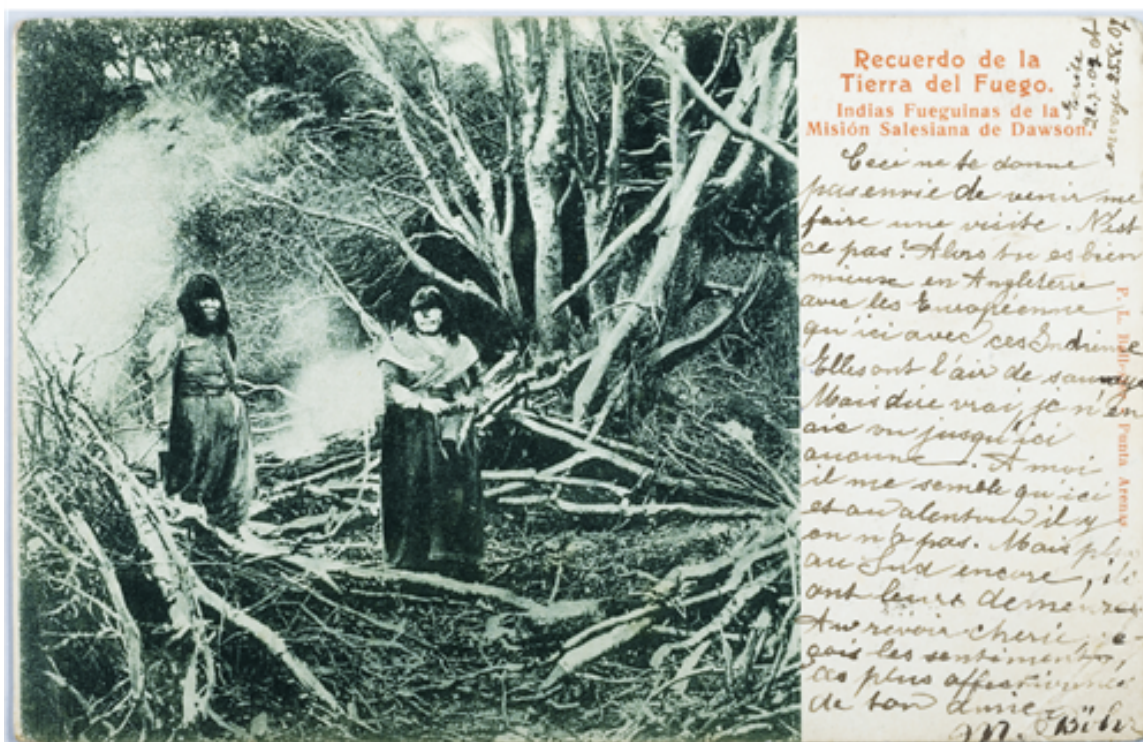 Recuerdo de la
Tierra del Fuego.
Indias Fueguinas de la
Misión Salesiana de Dawson.
envoyé 25.8.07
Ceci ne te donne
pas envie de venir me
faire une visite. N'est
ce pas? Alors tu es bien
mieuse en Angleterre
avec les Européenne
qu'ici avec ces Indienne
Elles ont l'air de
Mais dire vrai, je n'en
aie vu jusqu'ici
aucune. A moi
il me semble qu'ici
et au alentour il y
en n'a pas. Mais plus
au Sud encore,
ont leurs demeures
Au revoir cherie,
çois les sentiments,
les plus
de ton amie
M.
Punta Arenas